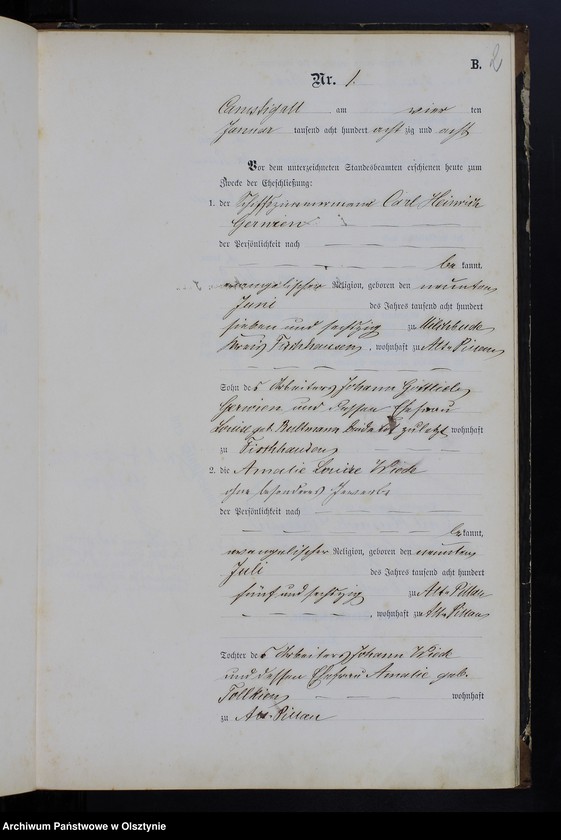 B. 2
Nr. 1.
Camstigall am vier ten
Januar tausend acht hundert achtzig und acht
Vor dem unterzeichneten Standesbeamten erschienen heute zum
Zwecke der Eheschließung:
1. der Schiffszimmermann Carl Heinrich
Gerwien
der Persönlichkeit nach
be kannt,
evangelischer Religion, geboren den neunten
Juni des Jahres tausend acht hundert
sieben und sechzig zu
Kreis Fischhausen, wohnhaft zu Alt-Pillau
Sohn des Arbeiters Johann Gottlieb
Gerwien und dessen Ehefrau
Louise geb. beide zuletzt wohnhaft
zu Fischhausen
2. die Amalie Louise Wieck
ohne besonderes Gewerbe
der Persönlichkeit nach
be kannt,
evangelischer Religion, geboren den neunten
Juli des Jahres tausend acht hundert
fünf und sechzig zu Alt-Pillau
, wohnhaft zu Alt-Pillau
Tochter des Arbeiters Johann Wieck
und dessen Ehefrau Amalie geb.
Tollkien wohnhaft
zu Alt-Pillau
Archiwum Państwowe w Olsztynie